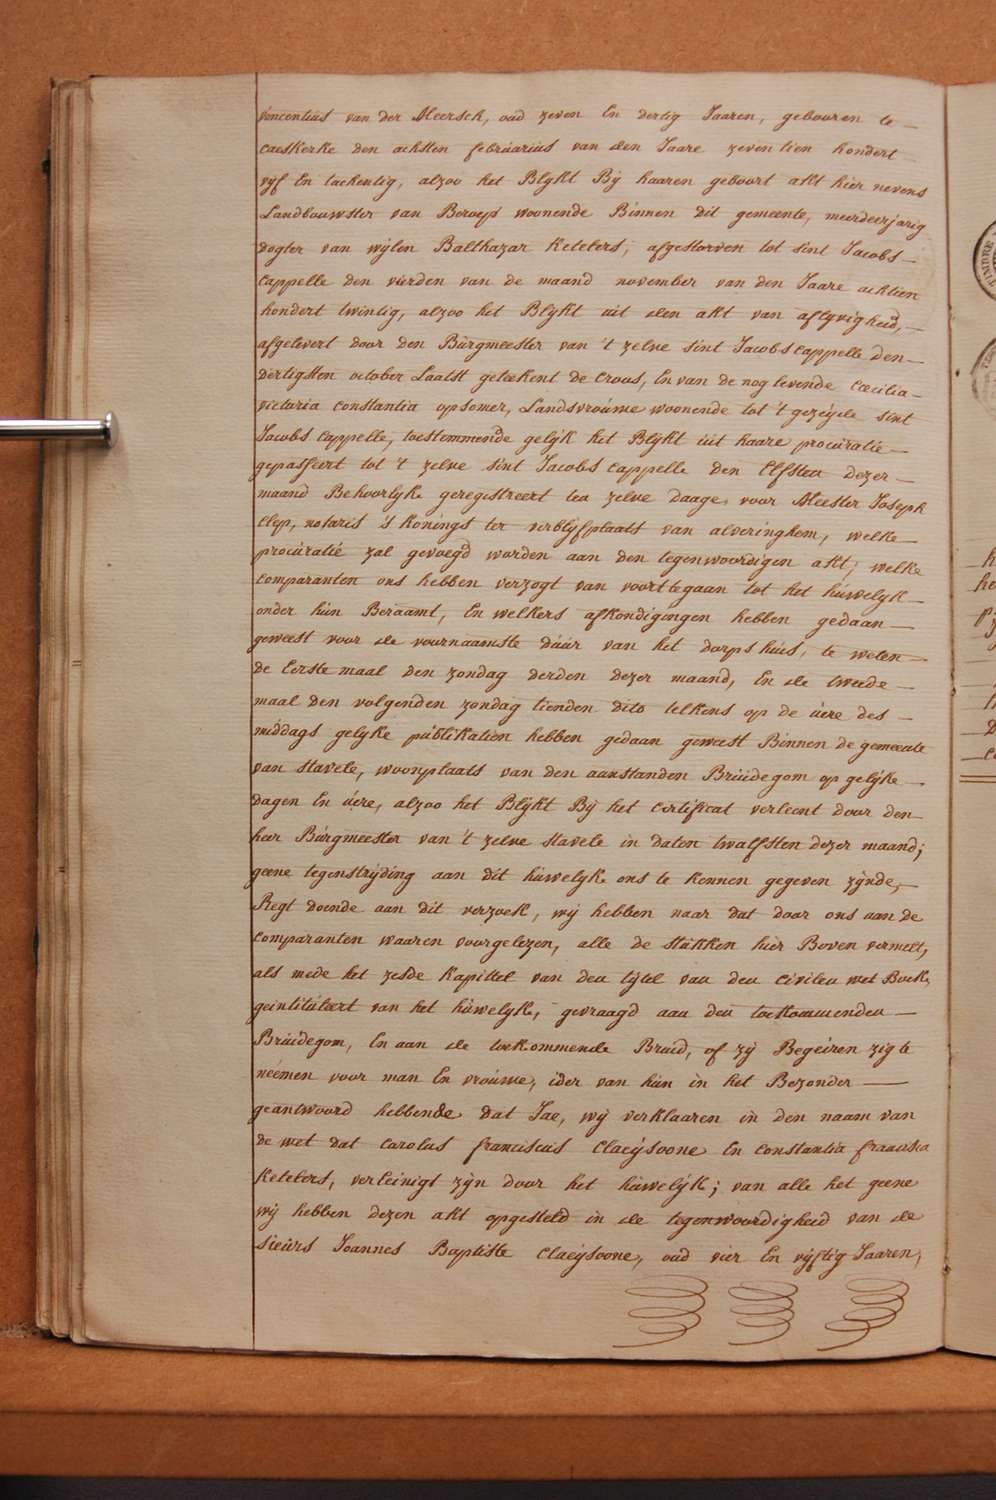 vincentius van der Meersch, oud zeven En dertig Jaaren, gebooren te
caeskerke den achsten februarius van den Jaare zeventien hondert
vyf En tachentig, alzoo het Blykt By haaren geboort akt hier nevens
Landbouwster van Beroep woonende Binnen dit gemeente, meerdeerjarig
dogter van wylen Balthazar Ketelers, afgestorven tot sint Jacobs
cappelle den vierden van de maand november van den Jaare achtien
hondert twintig, alzoo het Blykt uit den akt van aflyvigheid,
afgelevert door den Bürgmeester van 't zelve sint Jacobs cappelle den
dertigsten october Laatst geteekent de Crous, En van de nog levende Cæcilia
victoria constantia opsomer, Landsvroúwe woonende tot 't gezeyde sint
Jacobs cappelle, toestemmende gelyk het Blykt úit haare procúratie
gepasseert tot 't zelve sint Jacobs cappelle den Elfsten dezer
maand Behoorlyk geregistreert ten zelve daage voor Meester Joseph
Clep, notaris 's Konings ter verblyfplaats van alveringhem, welke
procúratié zal gevoegd worden aan den tegenwoordigen akt; welke
comparanten ons hebben verzogt van voorttegaan tot het húwelyk
onder hún Beraamt, En welkers afkondigingen hebben gedaan
geweest voor de voornaamste dúúr van het dorps húis, te weten
de Eerste maal den zondag derden dezer maand, En de tweede
maal den volgenden zondag tienden dito telkens op de úere des
middags gelyke públikatien hebben gedaan geweest Binnen de gemeente
van stavele, woonplaats van den aanstanden Brúidegom op gelyke
dagen En úere, alzoo het Blykt By het certificat verleent door den
heer Búrgmeester van 't zelve stavele in daten twalfsten dezer maand;
geene tegenstryding aan dit húwelyk ons te kennen gegeven zynde,
Regt doende aan dit verzoek, wy hebben naar dat door ons aan de
comparanten waaren voorgelezen, alle de stúkken hier Boven vermelt,
als mede het zesde Kapittel van den tytel van den civilen wet Boek,
geintitúleert van het húwelyk, gevraagd aan den toekommenden
Brúidegom, En aan de toekommende Bruid, of zy Begeiren zig te
neémen voor man En vroúwe, ider van hún in het Bezonder
geantwoord hebbende dat Jae, wy verklaaren in den naam van
de wet dat carolus franciscus Claeÿsoone En constantia francisca
Ketelers, verleinigt zyn door het húwelyk; van alle het geene
wy hebben dezen akt opgesteld in de tegenwoordigheid van de
sieúrs Joannes Baptiste Claeÿsoone, oud vier En vyftig Jaaren,
TIMBRE